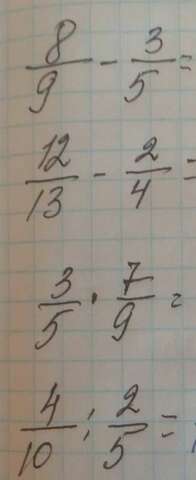 8/9 - 3/5 =
12/13 - 2/4 =
3/5 · 7/9 =
4/10 : 2/5 =